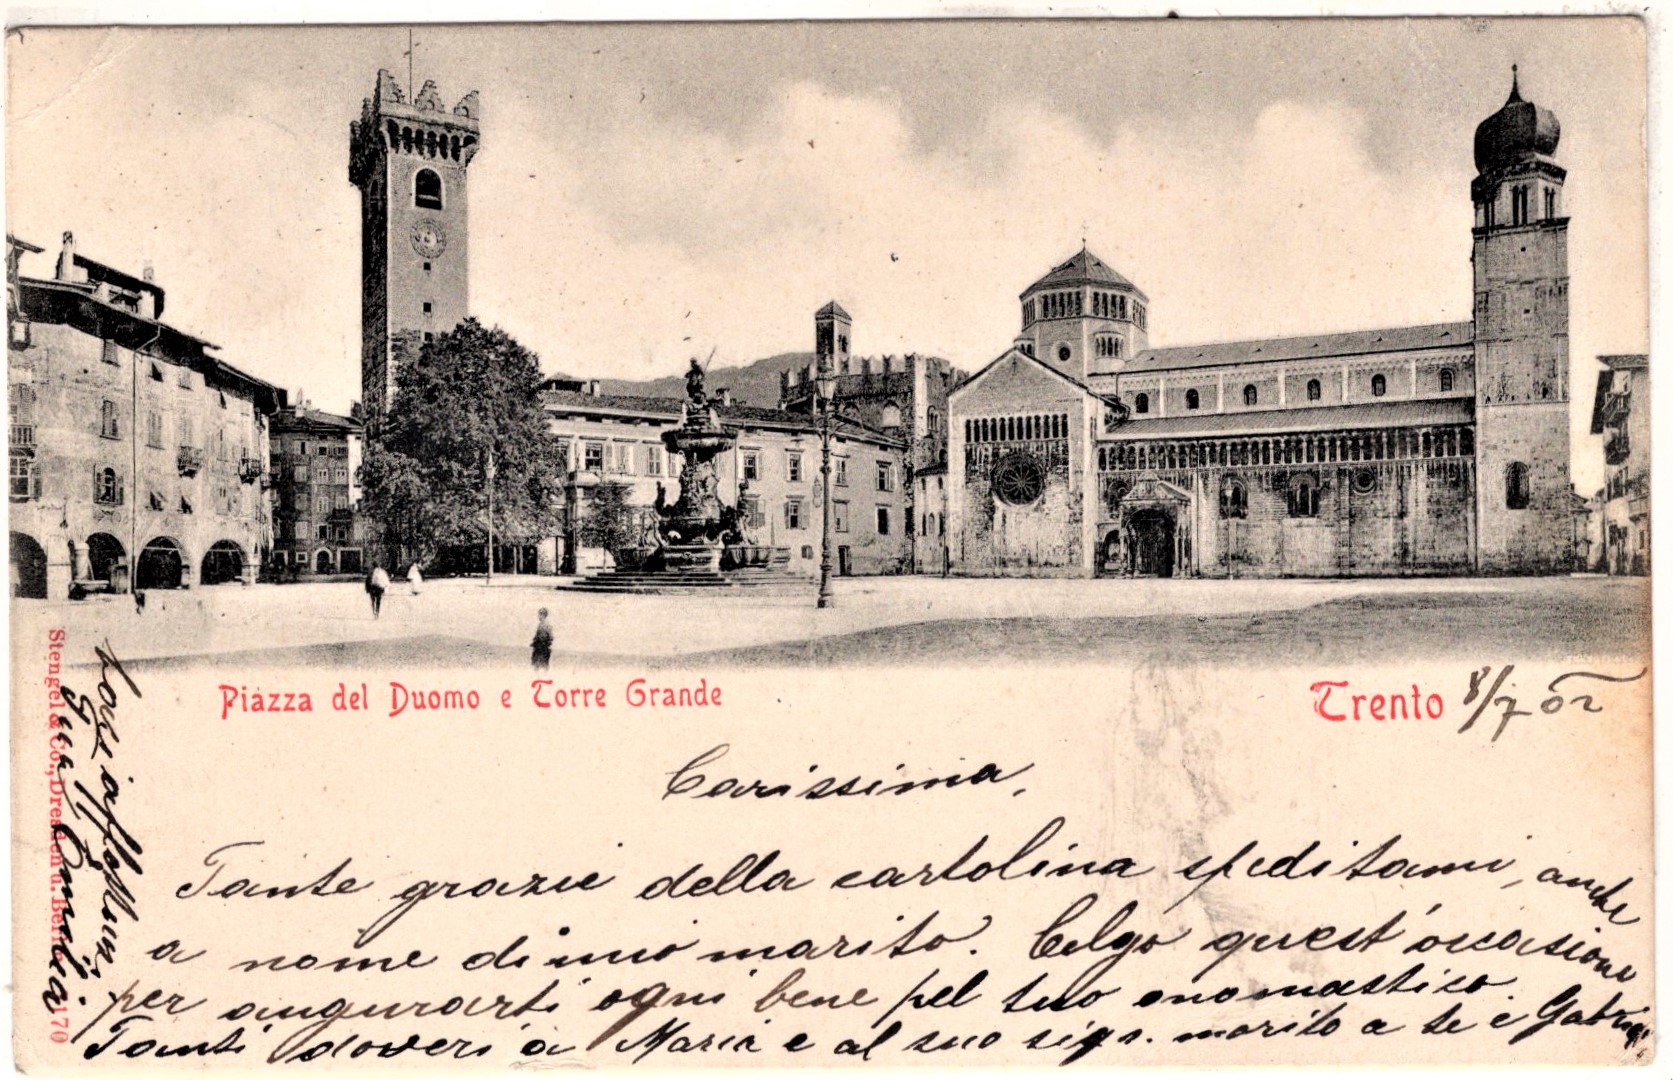 Piazza del Duomo e Torre Grande
Trento 8/7 02
Carissima,
Tante grazie della cartolina speditami, anche
a nome di mio marito. Colgo quest'occasione
per augurarti ogni bene pel tuo onomastico.
Tanti doveri a Maria e al suo sigr. marito a te e Gabri
baci affettuosi
tua Emilia
Stengel & Co., Dresden u. Berlin 170